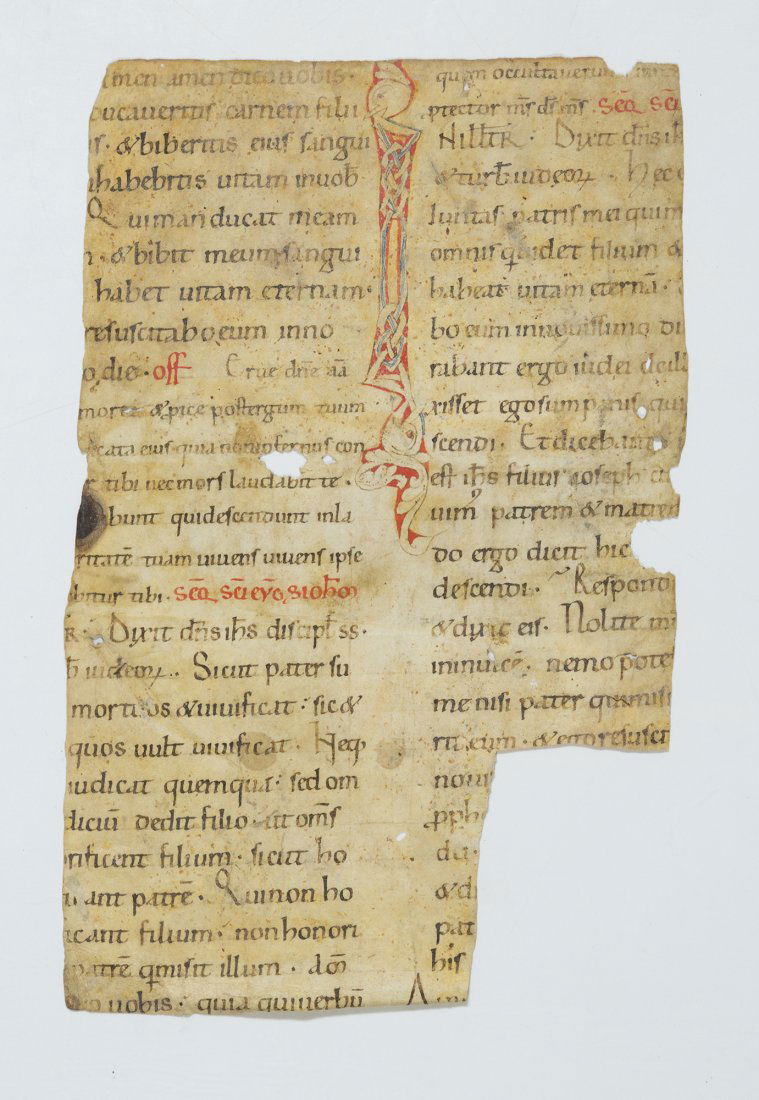 amen amen dico uobis ·
ducaueritis carnem filii
is · &biberitis eius sangui
habebitis uitam inuob̄
Qui manducat meam
· &bibit meum sangui
habet uitam eternam ·
resuscitabo eum inno
o die · off Erue dn̄e aā
mortē &pice postergum tuum
eius quia non infernus con
tibi nec mors laudabit te ·
bunt qui descendunt inla
ritatē tuam uiuens uiuens ipse
bitur tibi · Seq̄ Sc̄i
Dixit dn̄s ih̄s discipl̄ ss ·
iudeoꝝ . Sicut pater su
mortuos &uiuificat · sic &
quos uult uiuificat · Neq;
iudicat quemquā · sed om
diciū dedit filio · ut om̄s
rificent filium · sicut ho
ant patrē · Qui non ho
icant filium · non honori
patrē q̄ misit illum ·
uobis · quia qui uerbū
quam occultauerunt
ptector m̄s ds̄ m̄s Seq̄ Sc̄i
Dixit dn̄s ih̄
&turb̄ iudeoꝝ · Hec
luntas patris mei qui m
omnis qui uidet filium &
habeat uitam eternā ·
bo eum in nouissimo di
rabant ergo iudei de ill
xisset ego sum panis qui
scendi · Et dicebant
est ih̄s filius ioseph
patrem & matrem
do ergo dicit hic
descendi · Respond
&dixit eis · Nolite
inuicē · nemo p̄ote
me nisi pater qui misi
eum · &ego resuscit
nouis
pph
&d
pat
his
A